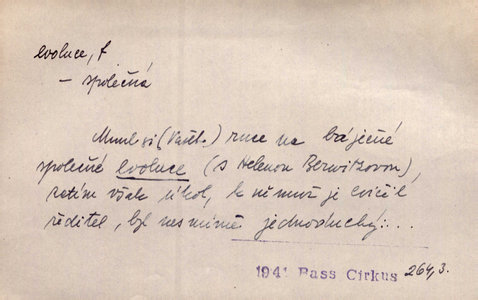 evoluce, f
– společná
Mnul si (Vašt.) ruce na báječné
společné evoluce (s Helenou Berwitzovou),
zatím však úkol, k němuž je cvičil
ředitel, byl nesmírně jednoduchý...
1941 Bass Cirkus 264,3.